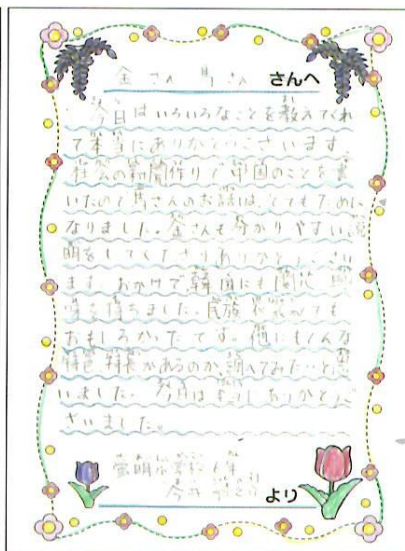 金さん 馬さん さんへ
今日はいろいろなことを教えてくれ
て本当にありがとうございます。
社会の新聞作りで中国のことを書
いたので馬さんのお話は、とてもために
なりました。金さんも分かりやすい説
明をしてくださりありがとうござい
ます。おかげで韓国にも関心
を持ちました。民族衣装がとても
おもしろかったです。他にもどんな
特色、特長があるのか調べてみたいと思
いました。今日は本当にありがとうご
ざいました。
小学校 6年
今井
より